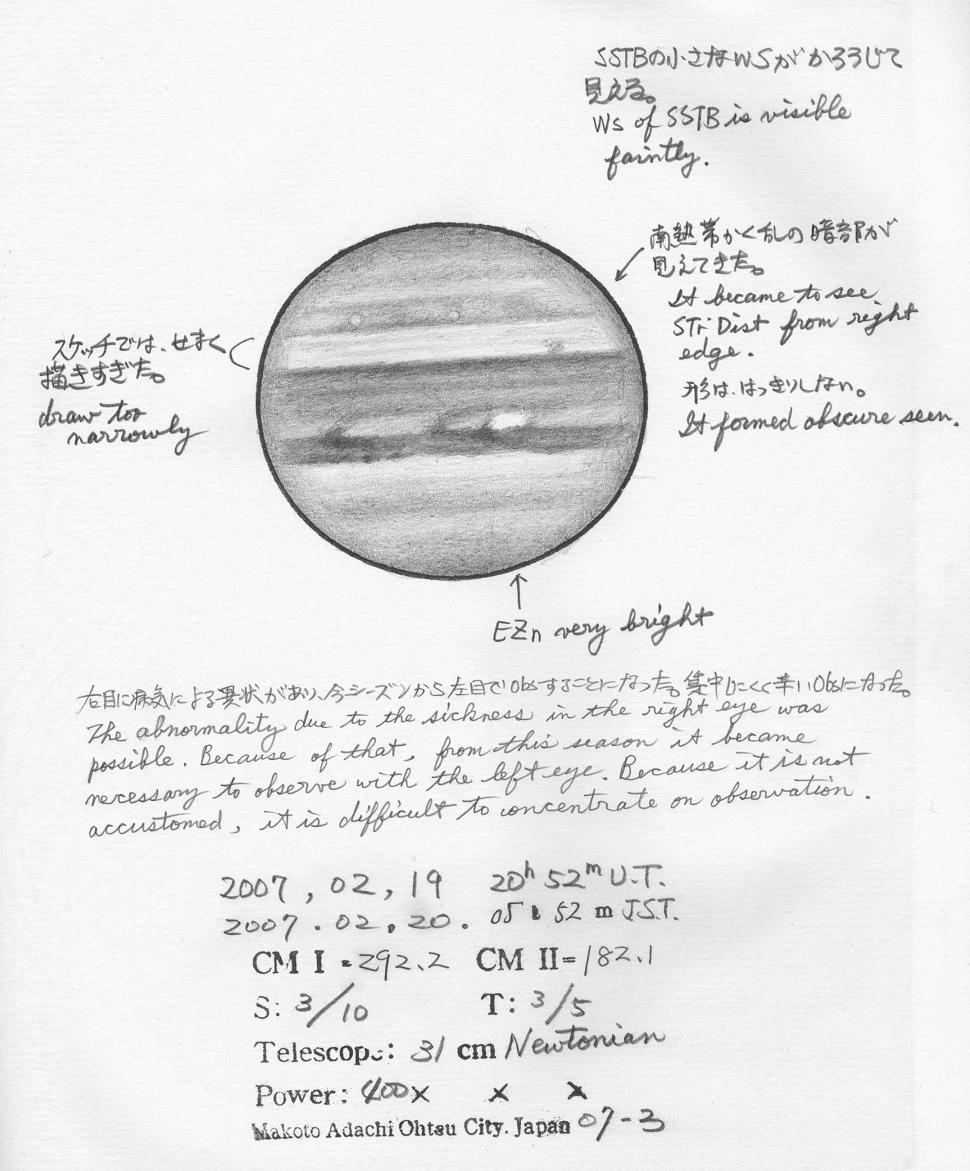 SSTBの小さなWSがかろうじて
見える。
WS of SSTB is visible
faintly.
南熱帯かく乱の暗部が
見えてきた。
It became to see
STrDist from right
edge.
形は、はっきりしない。
It formed obscure seen.
スケッチでは、せまく
描きすぎた。
draw too
narrowly
EZn very bright
右目に病気による異状があり、今シーズンから左目でObsすることになった。集中しにくく辛いObsになった。
The abnormality due to the sickness in the right eye was
possible. Because of that, from this season it became
necessary to observe with the left eye. Because it is not
accustomed, it is difficult to concentrate on observation.
2007, 02, 19 20h 52m U.T.
2007.02.20. 05h 52m J.S.T.
CM I = 292.2 CM II = 182.1
S: 3/10 T: 3/5
Telescope: 31 cm Newtonian
Power: 400× × ×
Makoto Adachi Ohtsu City. Japan 07-3